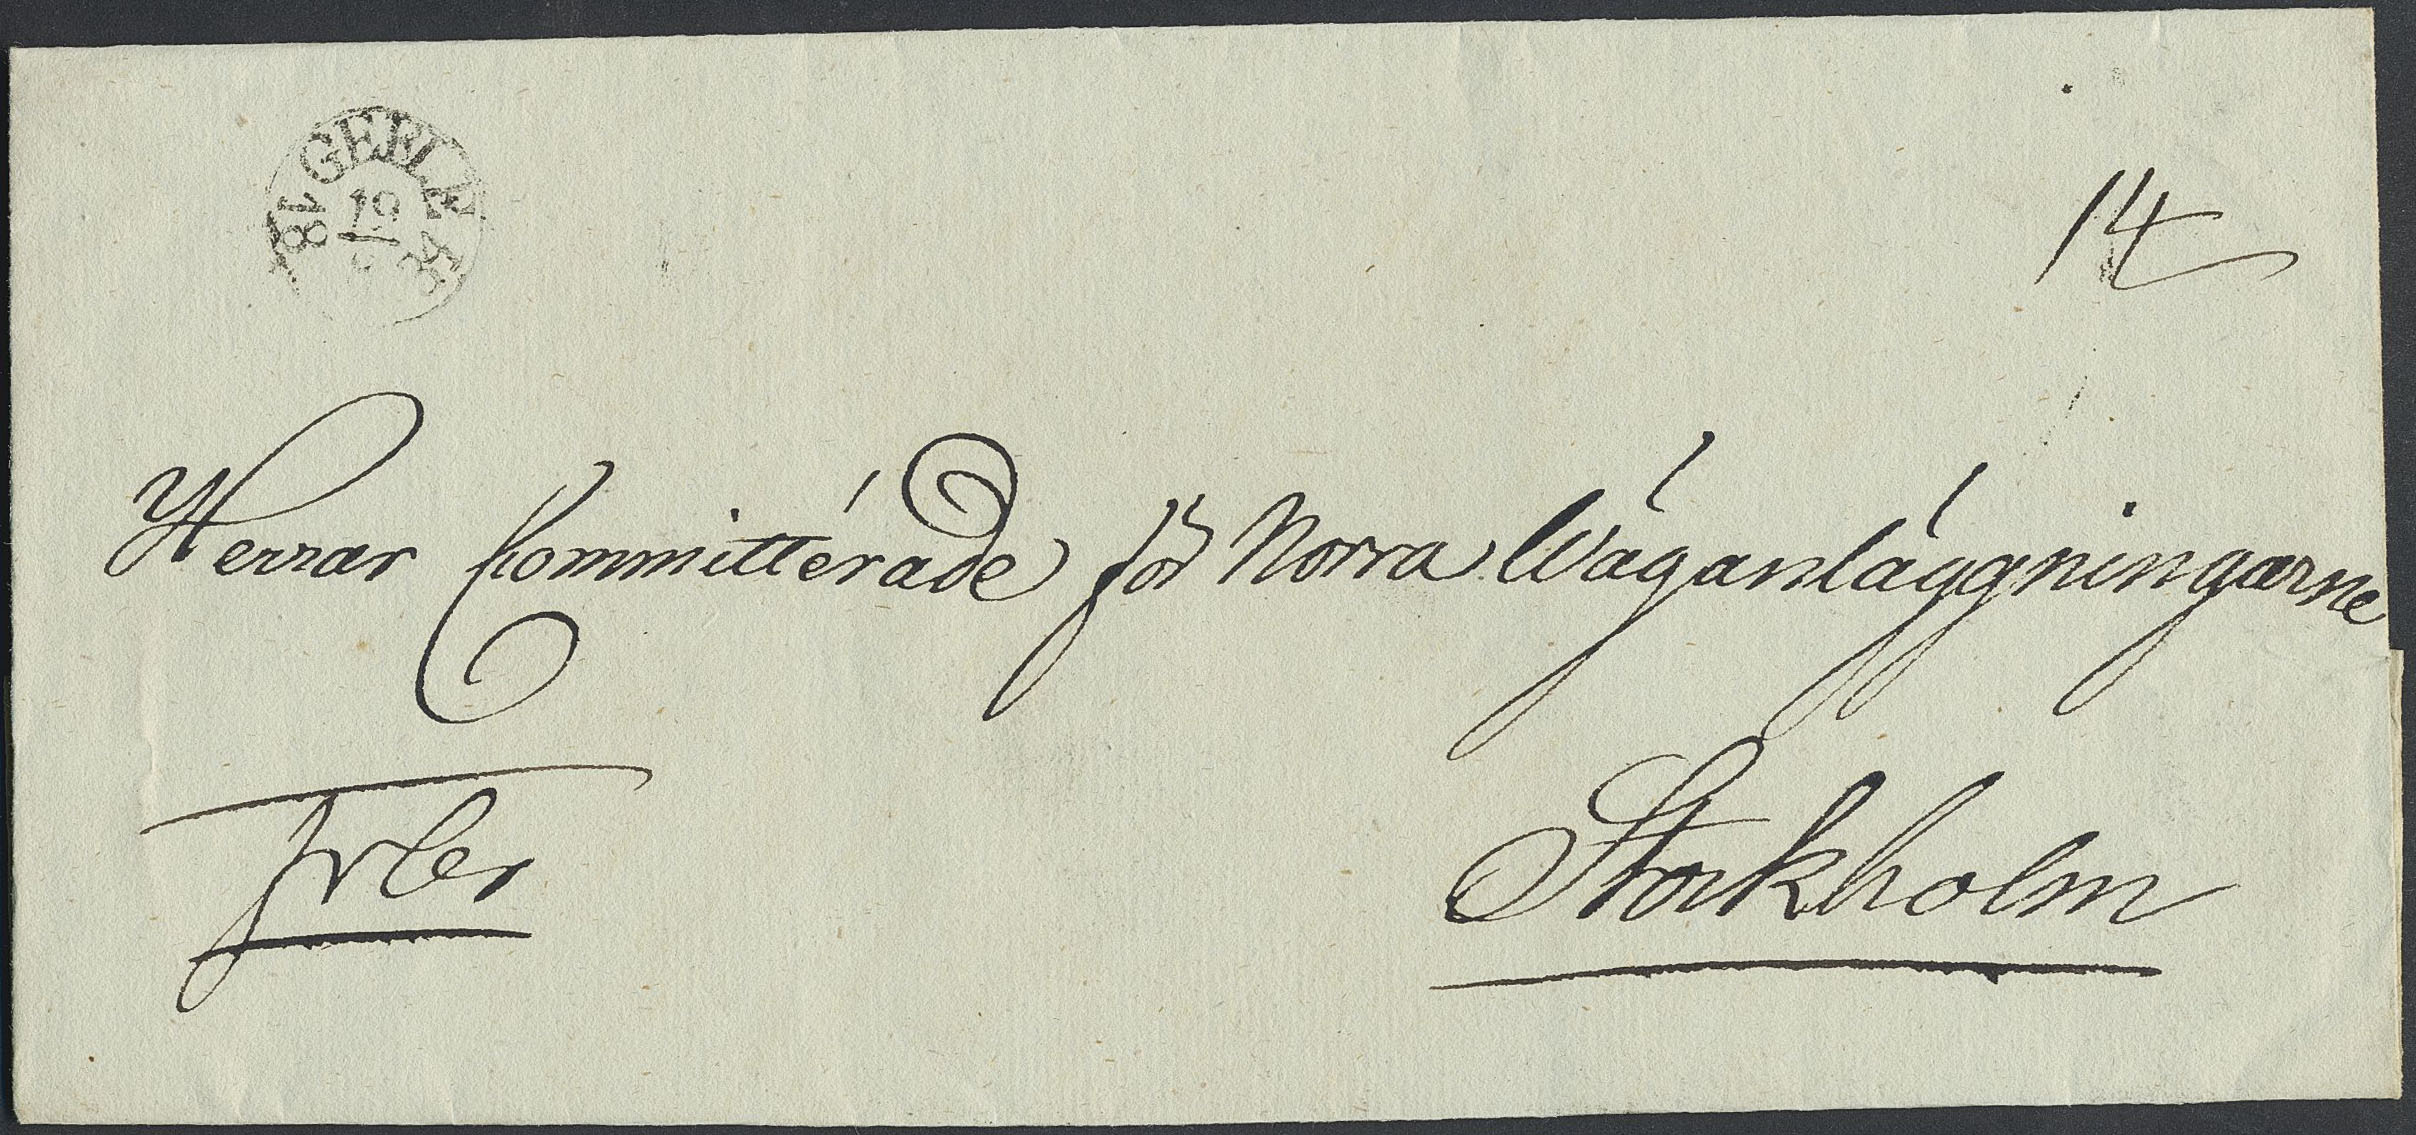 GEFLE
19
14
Herrar Committérade för Norra Wäganläggningarne
Stockholm